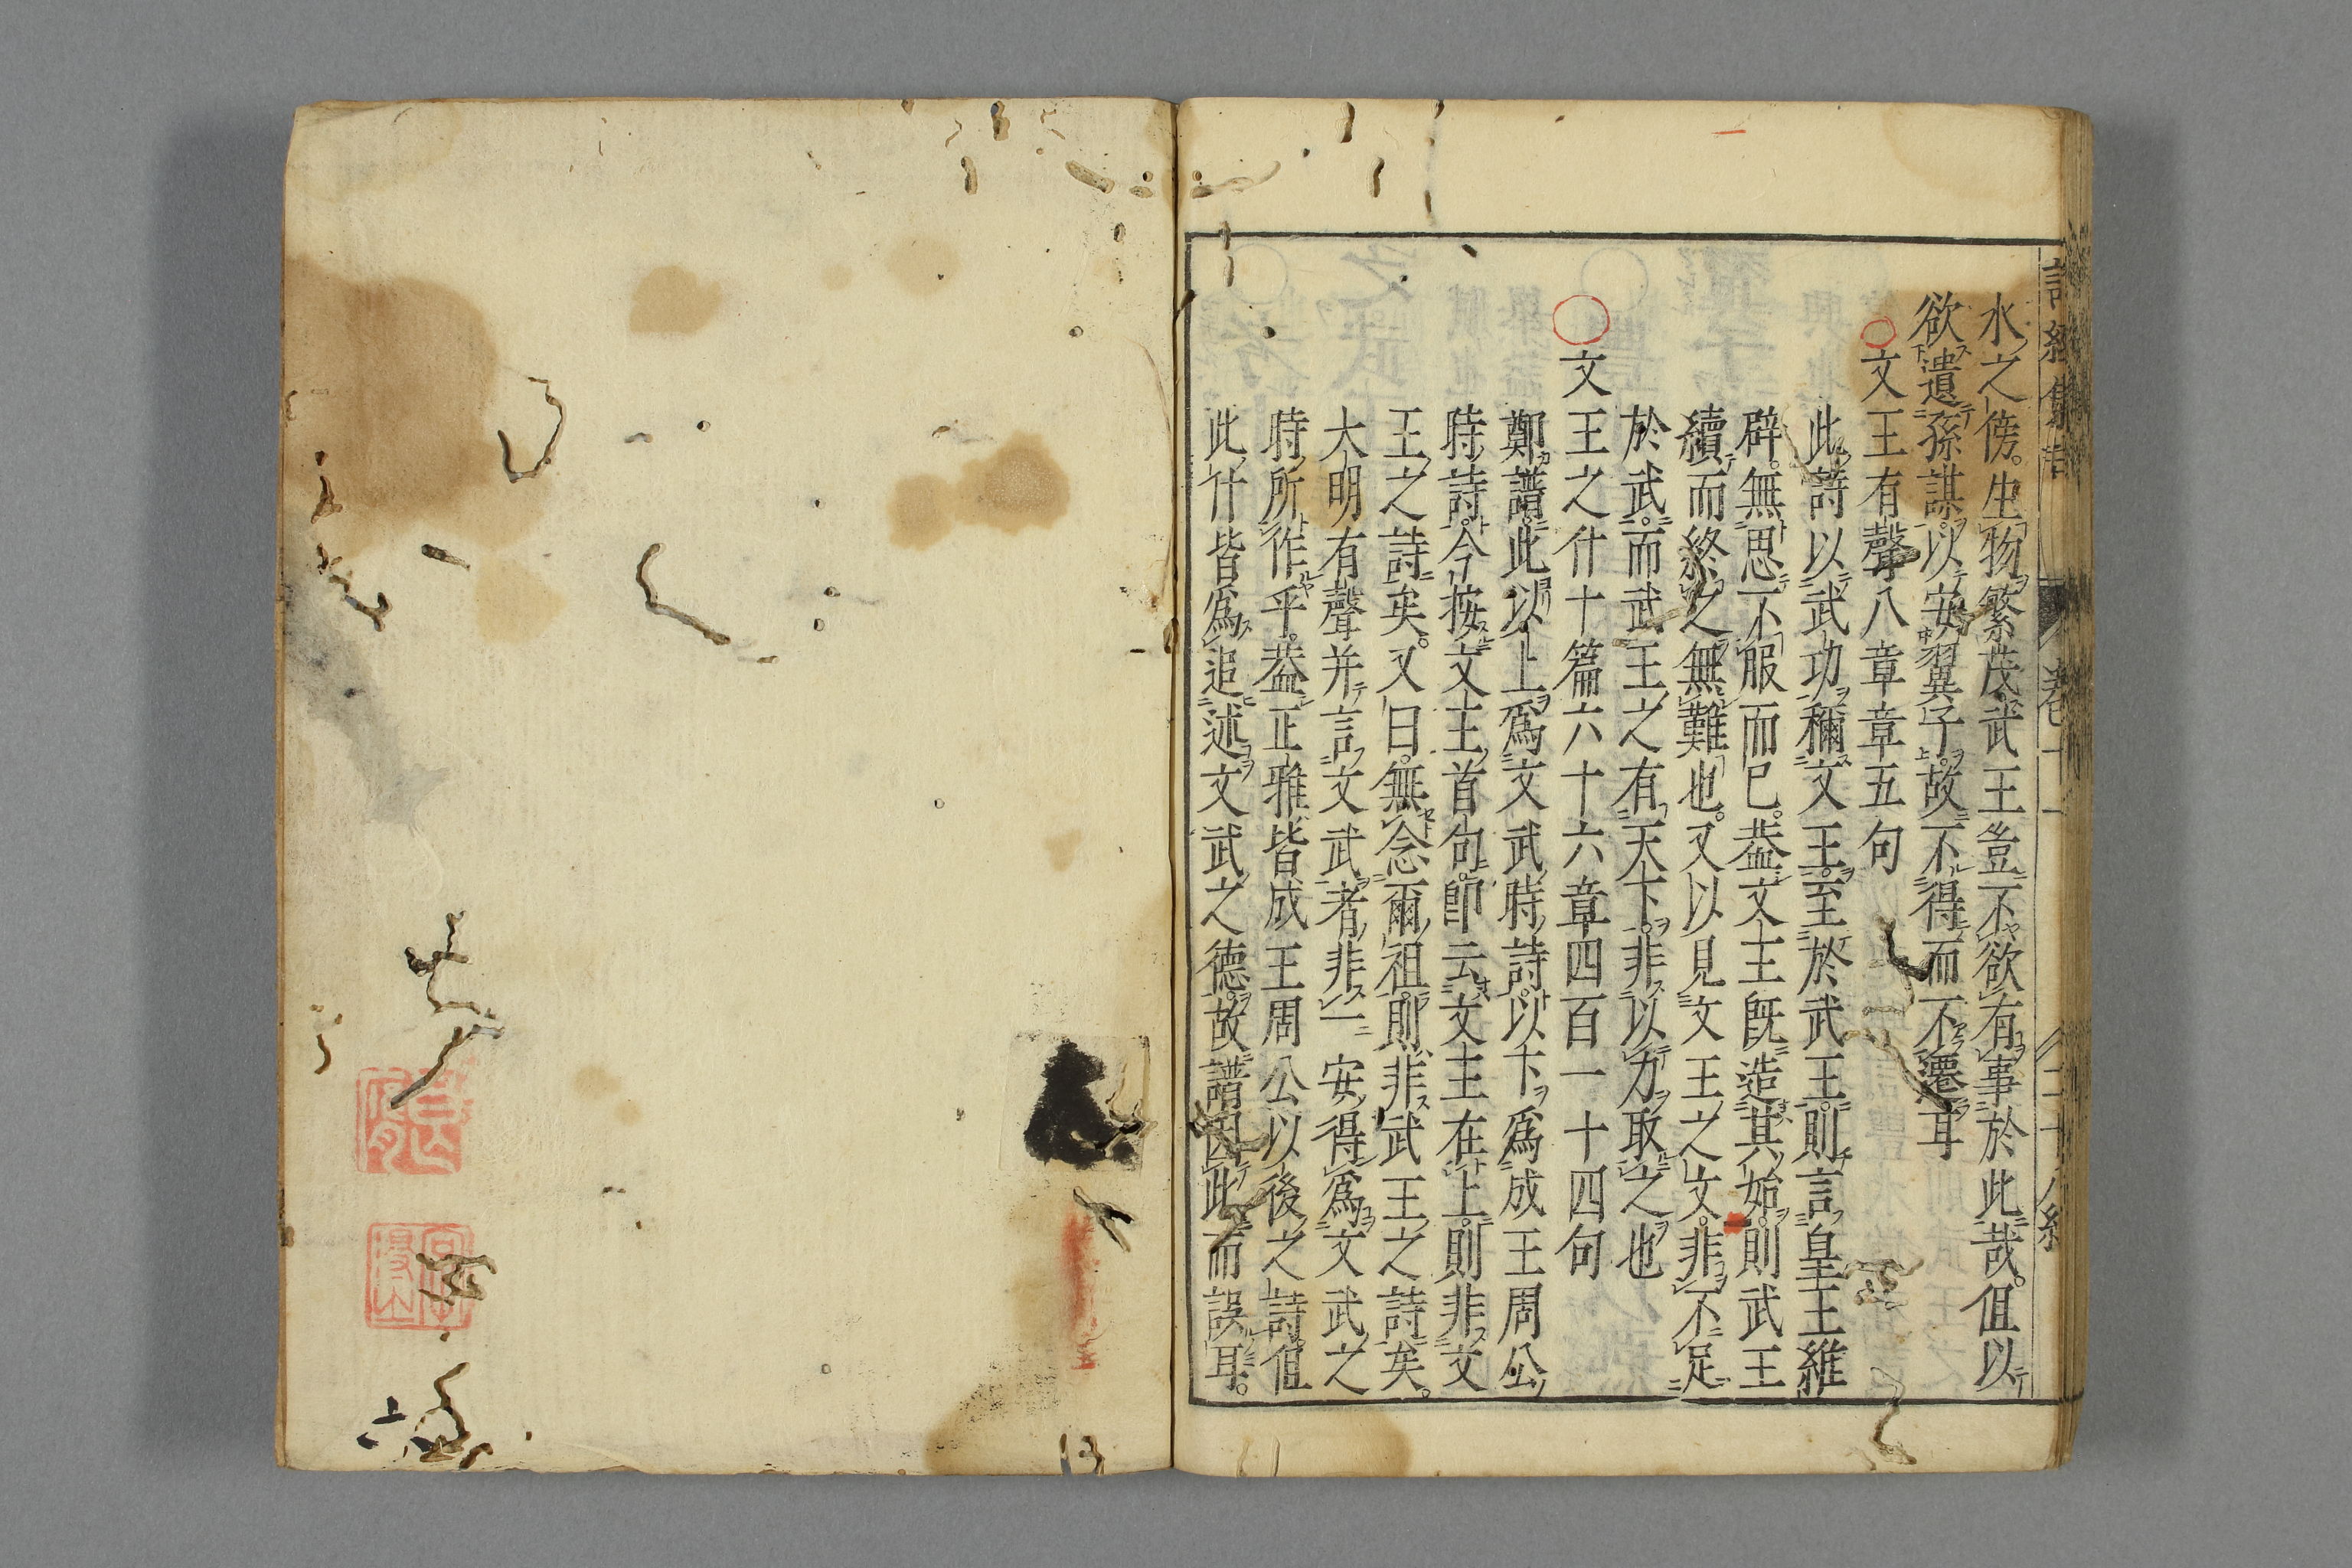 水之傍。生物繁茂。武王豈不欲有事於此哉。但以
欲遺孫謀。以安翼子。故不得而不遷耳
文王有聲八章章五句
此詩以武功稱文王。至於武王。則言皇王維
辟。無思不服而已。葢文王既造其始。則武王
續而終之無難也。又以見文王之文。非不足
於武。而武王之有天下。非以力取之也
文王之什十篇六十六章四百一十四句
鄭譜。此以上爲文武時詩。以下爲成王周公
時詩。今按文王首句。卽云文王在上。則非文
王之詩矣。又曰。無念爾祖。則非武王之詩矣。
大明有聲并言文武者非一安得爲文武之
時所作乎。葢正雅皆成王周公以後之詩。但
此什皆爲追述文武之德。故譜因此而誤耳。